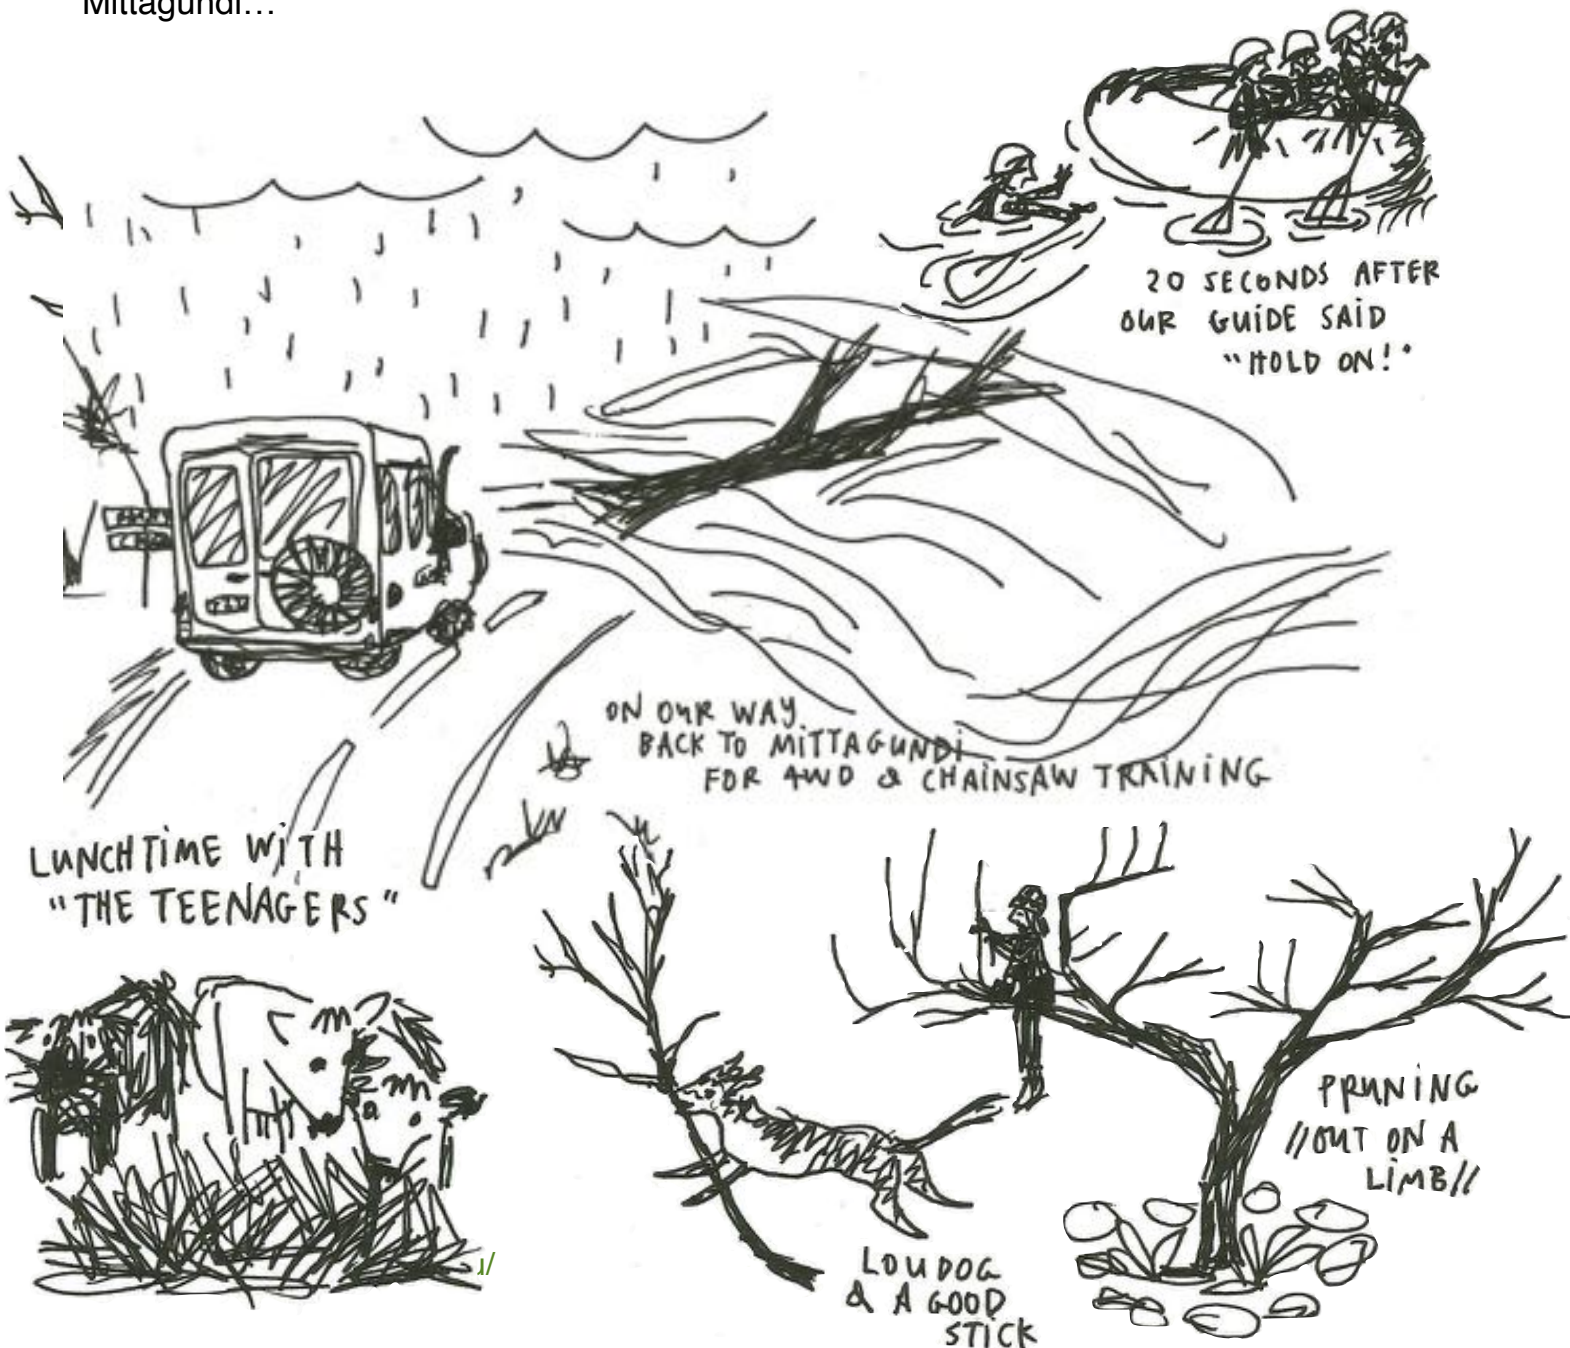 Mittagundi…
20 SECONDS AFTER
OUR GUIDE SAID
"HOLD ON!"
ON OUR WAY
BACK TO MITTAGUNDI
FOR 4WD & CHAINSAW TRAINING
LUNCHTIME WITH
"THE TEENAGERS"
PRUNING
//OUT ON A
LIMB//
LOUDOG
& A GOOD
STICK